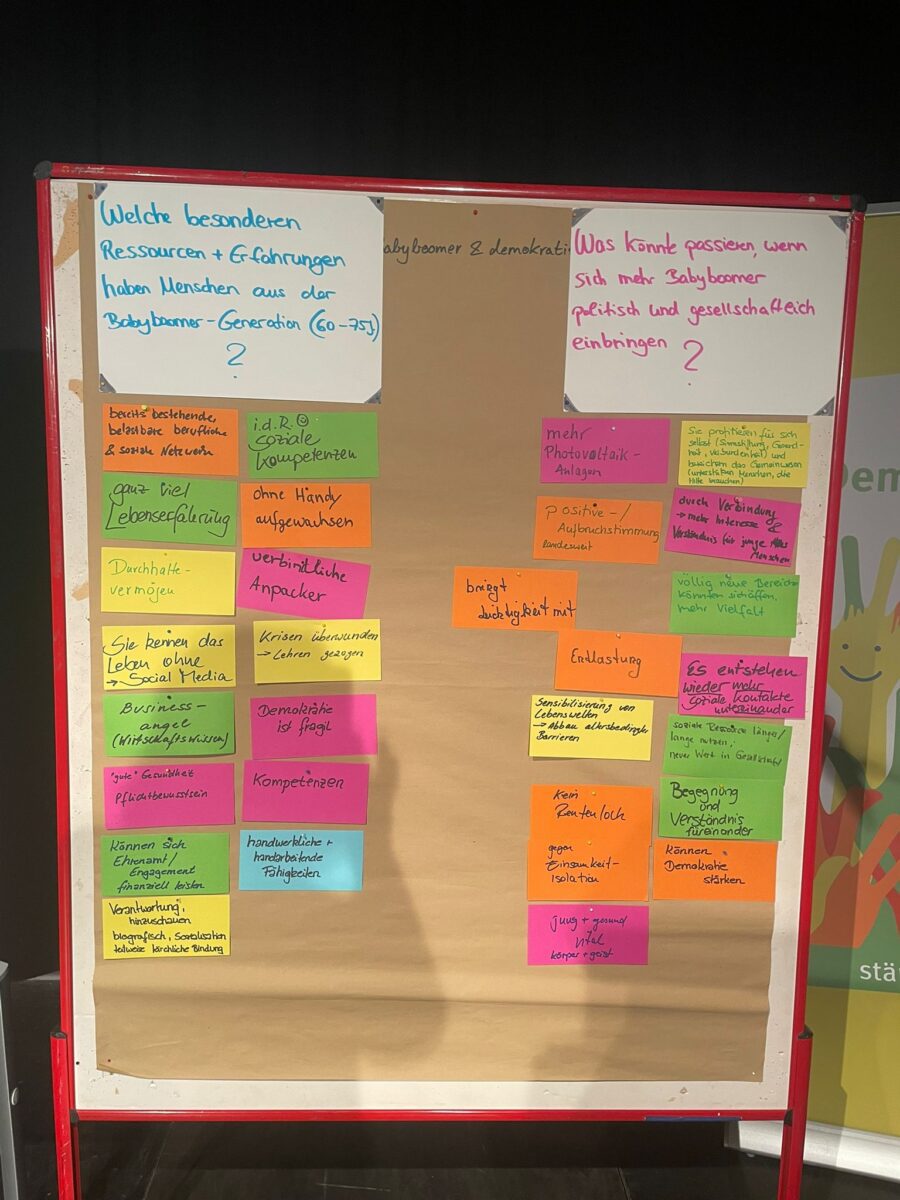 Welche besonderen
Ressourcen + Erfahrungen
haben Menschen aus der
Babyboomer-Generation (60-75J.)
?
abyboomer & demokrati
Was könnte passieren, wenn
sich mehr Babyboomer
politisch und gesellschaftlich
einbringen ?
bereits bestehende,
belastbare berufliche
& soziale Netzwerke
i.d.R. ☺
soziale
Kompetenzen
ganz viel
Lebenserfahrung
ohne Handy
aufgewachsen
Durchhalte-
vermögen
verbindliche
Anpacker
Sie kennen das
Leben ohne
→ Social Media
Krisen überwunden
→ Lehren gezogen
Business-
angel
(Wirtschaftswissen)
Demokratie
ist fragil
"gute" Gesundheit
Pflichtbewusstsein
Kompetenzen
Können sich
Ehrenamt/
Engagement
finanziell leisten
handwerkliche +
handarbeitende
Fähigkeiten
Verantwortung,
hinzuschauen
biografisch, Sozialisation
teilweise kirchliche Bindung
mehr
Photovoltaik-
Anlagen
Sie profitieren für sich
selbst (Sinnstiftung, Gesund-
heit, Verbundenheit) und
bereichern das Gemeinwesen
(unterstützen Menschen, die
Hilfe brauchen)
positive-/
Aufbruchstimmung
landesweit
durch Verbindung
→ mehr Interesse &
Verständnis für junge
Menschen
bringt
Leichtigkeit mit
völlig neue Bereiche
könnten schaffen,
mehr Vielfalt
Entlastung
Es entstehen
wieder mehr
soziale Kontakte
untereinander
Sensibilisierung von
Lebenswelten
→ Abbau altersbedingter
Barrieren
soziale Ressource länger/
lange nutzen,
neuer Wert in Gesellschaft
kein
Rentenloch
Begegnung
und
Verständnis
füreinander
gegen
Einsamkeit-
Isolation
können
Demokratie
stärken
jung + gesund
vital
körper + geist
Dem
stä